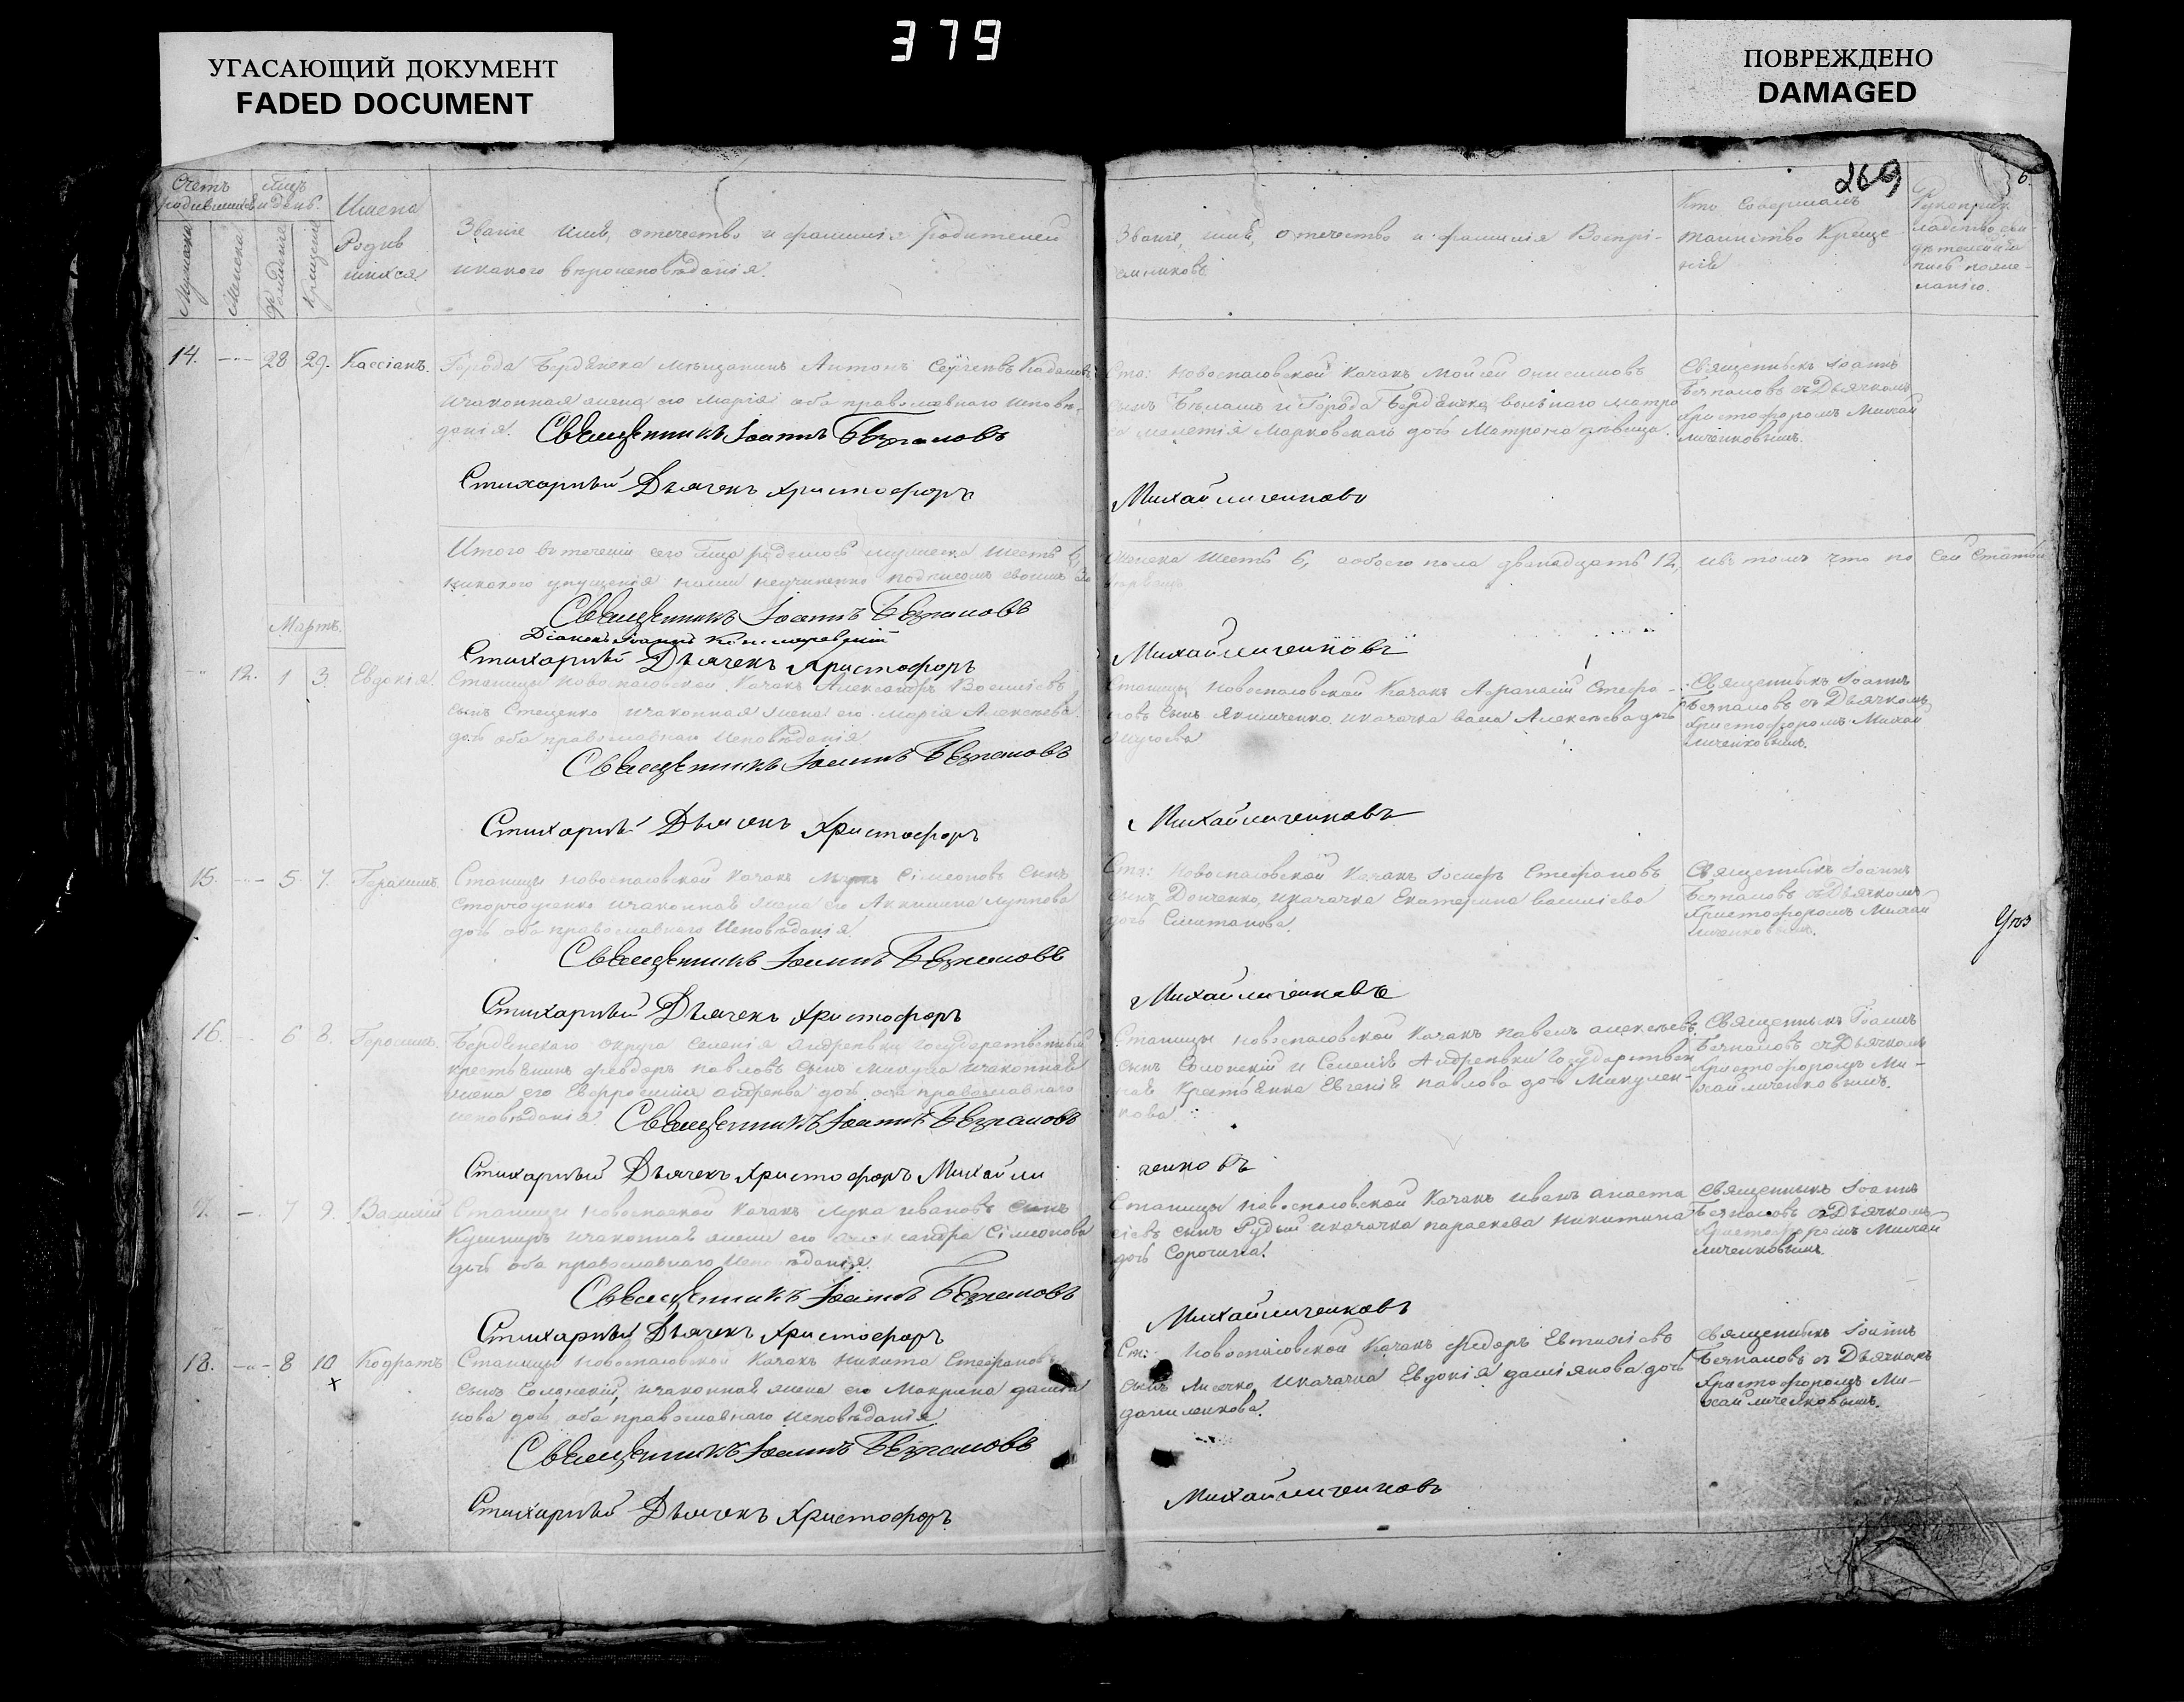 379
УГАСАЮЩИЙ ДОКУМЕНТ
FADED DOCUMENT
ПОВРЕЖДЕНО
DAMAGED
269
6.
Счетъ родившихся
Мѣсяцъ и день.
Мужеска
Женска
Рожденія
Крещенія
Имена
Родив
шихся
Званіе имя, отечество и фамилія родителей
и какого вѣроисповѣданія.
Званіе, имя, отечество и фамилія Воспрі-
емниковъ
Кто совершалъ
таинство Креще
нія
Рукоприк
ладство сви
дѣтелей
по же-
ланію.
14. 28 29. Кассіанъ.
Города Бердянска мѣщанинъ Антонъ Сергеевъ
и законная жена его Марія оба православнаго исповѣ-
данія. Священникъ Іоаннъ Безпаловъ
Стихарный Дьячекъ Христофоръ
Новоспасовской казакъ Мойсей Онисимовъ
сынъ Бѣлашъ и Города Бердянска вольнаго матро
са Марковскаго дочь Матрона дѣвица.
Михайличенковъ
Священникъ Іоаннъ
Безпаловъ съ Дьячкомъ
Христофоромъ Михай
личенковымъ.
Итого въ теченіи сего мѣсяца родилось мужеска шесть 6,
никакого упущенія нами неучинено подписомъ своимъ
женска шесть 6, а обоего пола двенадцать 12, и въ томъ что по сей статьи
Священникъ Іоаннъ Безпаловъ
Діаконъ Іоаннъ
Стихарный Дьячекъ Христофоръ
Михайличенковъ
Мартъ.
12. 1 3. Евдокія.
Станицы Новоспасовской Казакъ Александръ Василіевъ
сынъ Стеценко и законная жена его Марія Алексѣева
дочь оба православнаго исповѣданія
Священникъ Іоаннъ Безпаловъ
Стихарный Дьячекъ Христофоръ
Станицы Новоспасовской Казакъ Афанасій Стефа-
новъ сынъ Якименко и казачка Алексѣева дочь
Михайличенковъ
Священникъ Іоаннъ
Безпаловъ съ Дьячкомъ
Христофоромъ Михай
личенковымъ.
15. 5 7. Герасимъ.
Станицы Новоспасовской Казакъ Сімеоновъ сынъ
и законная жена его Акилина Луппова
дочь оба православнаго исповѣданія.
Священникъ Іоаннъ Безпаловъ
Стихарный Дьячекъ Христофоръ
Новоспасовской Казакъ Іосифъ Стефановъ
сынъ Донченко, и казачка Екатерина Василіева
дочь
Михайличенковъ
Священникъ Іоаннъ
Безпаловъ съ Дьячкомъ
Христофоромъ Михай
личенковымъ.
16. 6 8. Герасимъ.
Бердянскаго округа селенія Андреевки государственный
крестьянинъ Феодоръ Павловъ сынъ Микула и законная
жена его Евфросинія Андреева дочь оба православнаго
исповѣданія. Священникъ Іоаннъ Безпаловъ
Стихарный Дьячекъ Христофоръ Михайли
Станицы Новоспасовской Казакъ Павелъ Алексѣевъ
сынъ Солонскій и селенія Андреевки Государствен
ная Крестьянка Евгенія Павлова дочь Микулен-
кова
ченковъ
Священникъ Іоаннъ
Безпаловъ съ Дьячкомъ
Христофоромъ Ми-
хайличенковымъ.
17. 7 9. Василій
Станицы Новоспасской Казакъ Лука Ивановъ сынъ
Кушниръ и законная жена его Александра Сімеонова
дочь оба православнаго исповѣданія.
Священникъ Іоаннъ Безпаловъ
Стихарный Дьячекъ Христофоръ
Станицы Новоспасовской Казакъ Иванъ Анаста
сіевъ сынъ Рудый и казачка Параскева Никитина
дочь Сорочина.
Михайличенковъ
Священникъ Іоаннъ
Безпаловъ съ Дьячкомъ
Христофоромъ Михай
личенковымъ.
18. 8 10 Кодратъ
Станицы Новоспасовской Казакъ Никита Стефановъ
сынъ Солонскій, и законная жена его Макрина Даміа
нова дочь, оба православнаго исповѣданія
Священникъ Іоаннъ Безпаловъ
Стихарный Дьячекъ Христофоръ
Новоспасовской Казакъ Федоръ Евтихіевъ
сынъ и казачка Евдокія Даміянова дочь
Даниленкова.
Михайличенковъ
Священникъ Іоаннъ
Безпаловъ съ Дьячкомъ
Христофоромъ Ми-
хайличенковымъ.